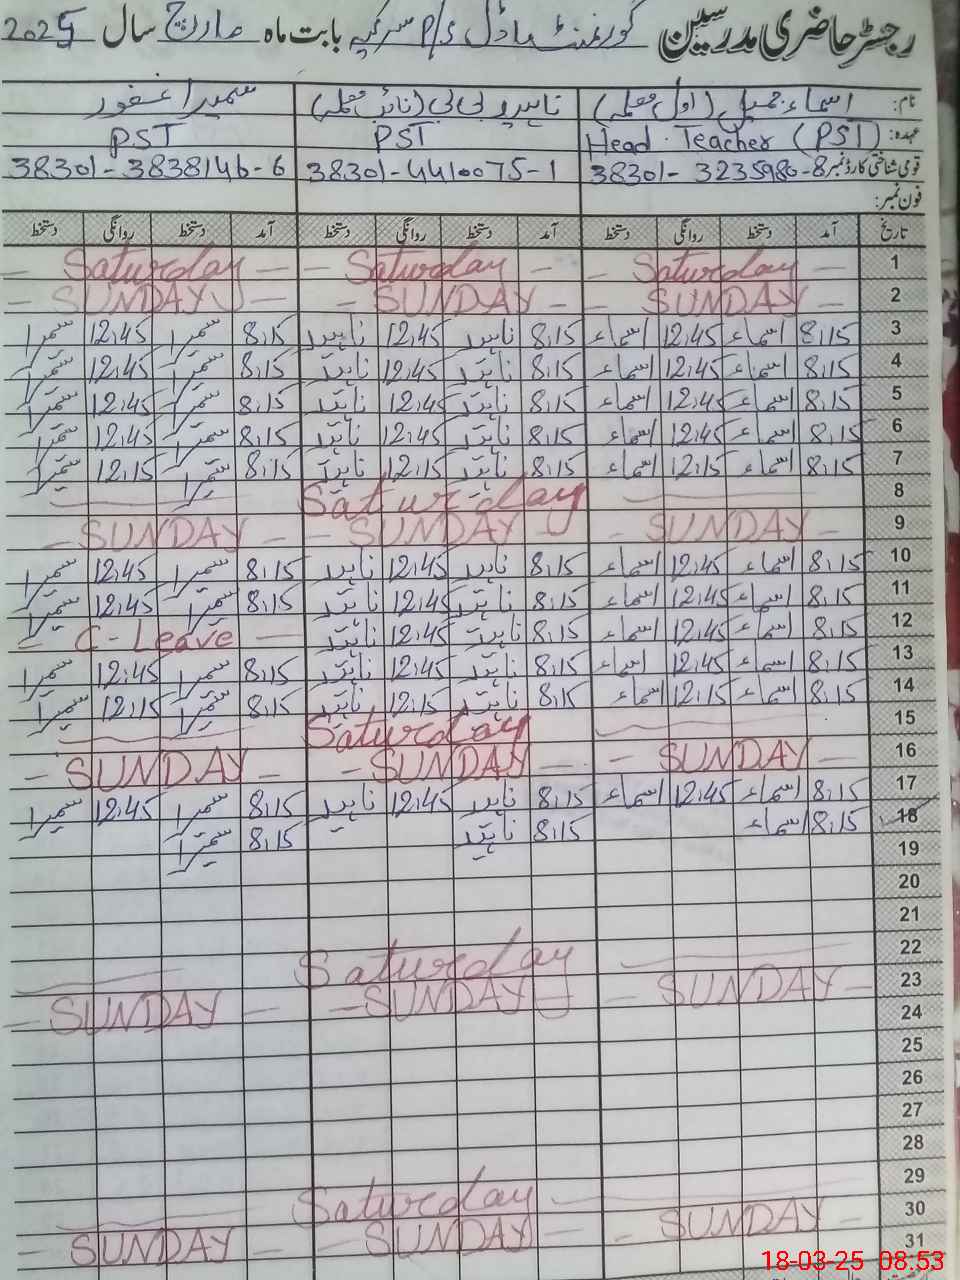 رجسٹر حاضری مدرسین گورنمنٹ ماڈل P/S سرکیہ بابت ماہ مارچ سال 2025
نام: اسماء جمیل (اول معلمہ) ناہید بی بی (نائب معلمہ) سمیرا غفور
عہدہ: Head Teacher (PST) PST PST
قومی شناختی کارڈ نمبر 38301-3235980-8 38301-4410075-1 38301-3838146-6
فون نمبر:
تاریخ آمد دستخط روانگی دستخط آمد دستخط روانگی دستخط آمد دستخط روانگی دستخط
1 Saturday Saturday Saturday
2 SUNDAY SUNDAY SUNDAY
3 8,15 اسماء 12,45 اسماء 8,15 ناہید 12,45 ناہید 8,15 سمیرا 12,45 سمیرا
4 8,15 اسماء 12,45 اسماء 8,15 ناہید 12,45 ناہید 8,15 سمیرا 12,45 سمیرا
5 8,15 اسماء 12,45 اسماء 8,15 ناہید 12,45 ناہید 8,15 سمیرا 12,45 سمیرا
6 8,15 اسماء 12,45 اسماء 8,15 ناہید 12,45 ناہید 8,15 سمیرا 12,45 سمیرا
7 8,15 اسماء 12,15 اسماء 8,15 ناہید 12,15 ناہید 8,15 سمیرا 12,15 سمیرا
8 Saturday
9 SUNDAY SUNDAY SUNDAY
10 8,15 اسماء 12,45 اسماء 8,15 ناہید 12,45 ناہید 8,15 سمیرا 12,45 سمیرا
11 8,15 اسماء 12,45 اسماء 8,15 ناہید 12,45 ناہید 8,15 سمیرا 12,45 سمیرا
12 8,15 اسماء 12,45 اسماء 8,15 ناہید 12,45 ناہید C-Leave
13 8,15 اسماء 12,45 اسماء 8,15 ناہید 12,45 ناہید 8,15 سمیرا 12,45 سمیرا
14 8,15 اسماء 12,15 اسماء 8,15 ناہید 12,15 ناہید 8,15 سمیرا 12,15 سمیرا
15 Saturday
16 SUNDAY SUNDAY SUNDAY
17 8,15 اسماء 12,45 اسماء 8,15 ناہید 12,45 ناہید 8,15 سمیرا 12,45 سمیرا
18 8,15 اسماء 8,15 ناہید 8,15 سمیرا
19
20
21
22 Saturday
23 SUNDAY SUNDAY SUNDAY
24
25
26
27
28
29 Saturday
30 SUNDAY SUNDAY SUNDAY
31
18-03-25 08:53